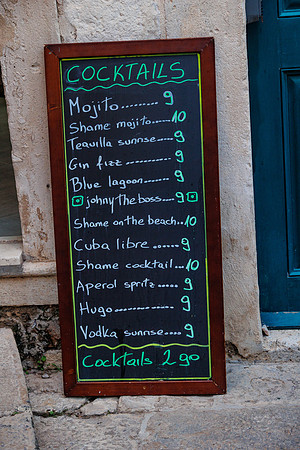 COCKTAILS
Mojito.......... 9
Shame mojito..... 10
Tequilla sunrise... 9
Gin fizz ........... 9
Blue lagoon....... 9
johny the boss.... 9
Shame on the beach.. 10
Cuba libre ....... 9
Shame cocktail... 10
Aperol spritz ..... 9
Hugo ........... 9
Vodka sunrise.... 9
Cocktails 2 go